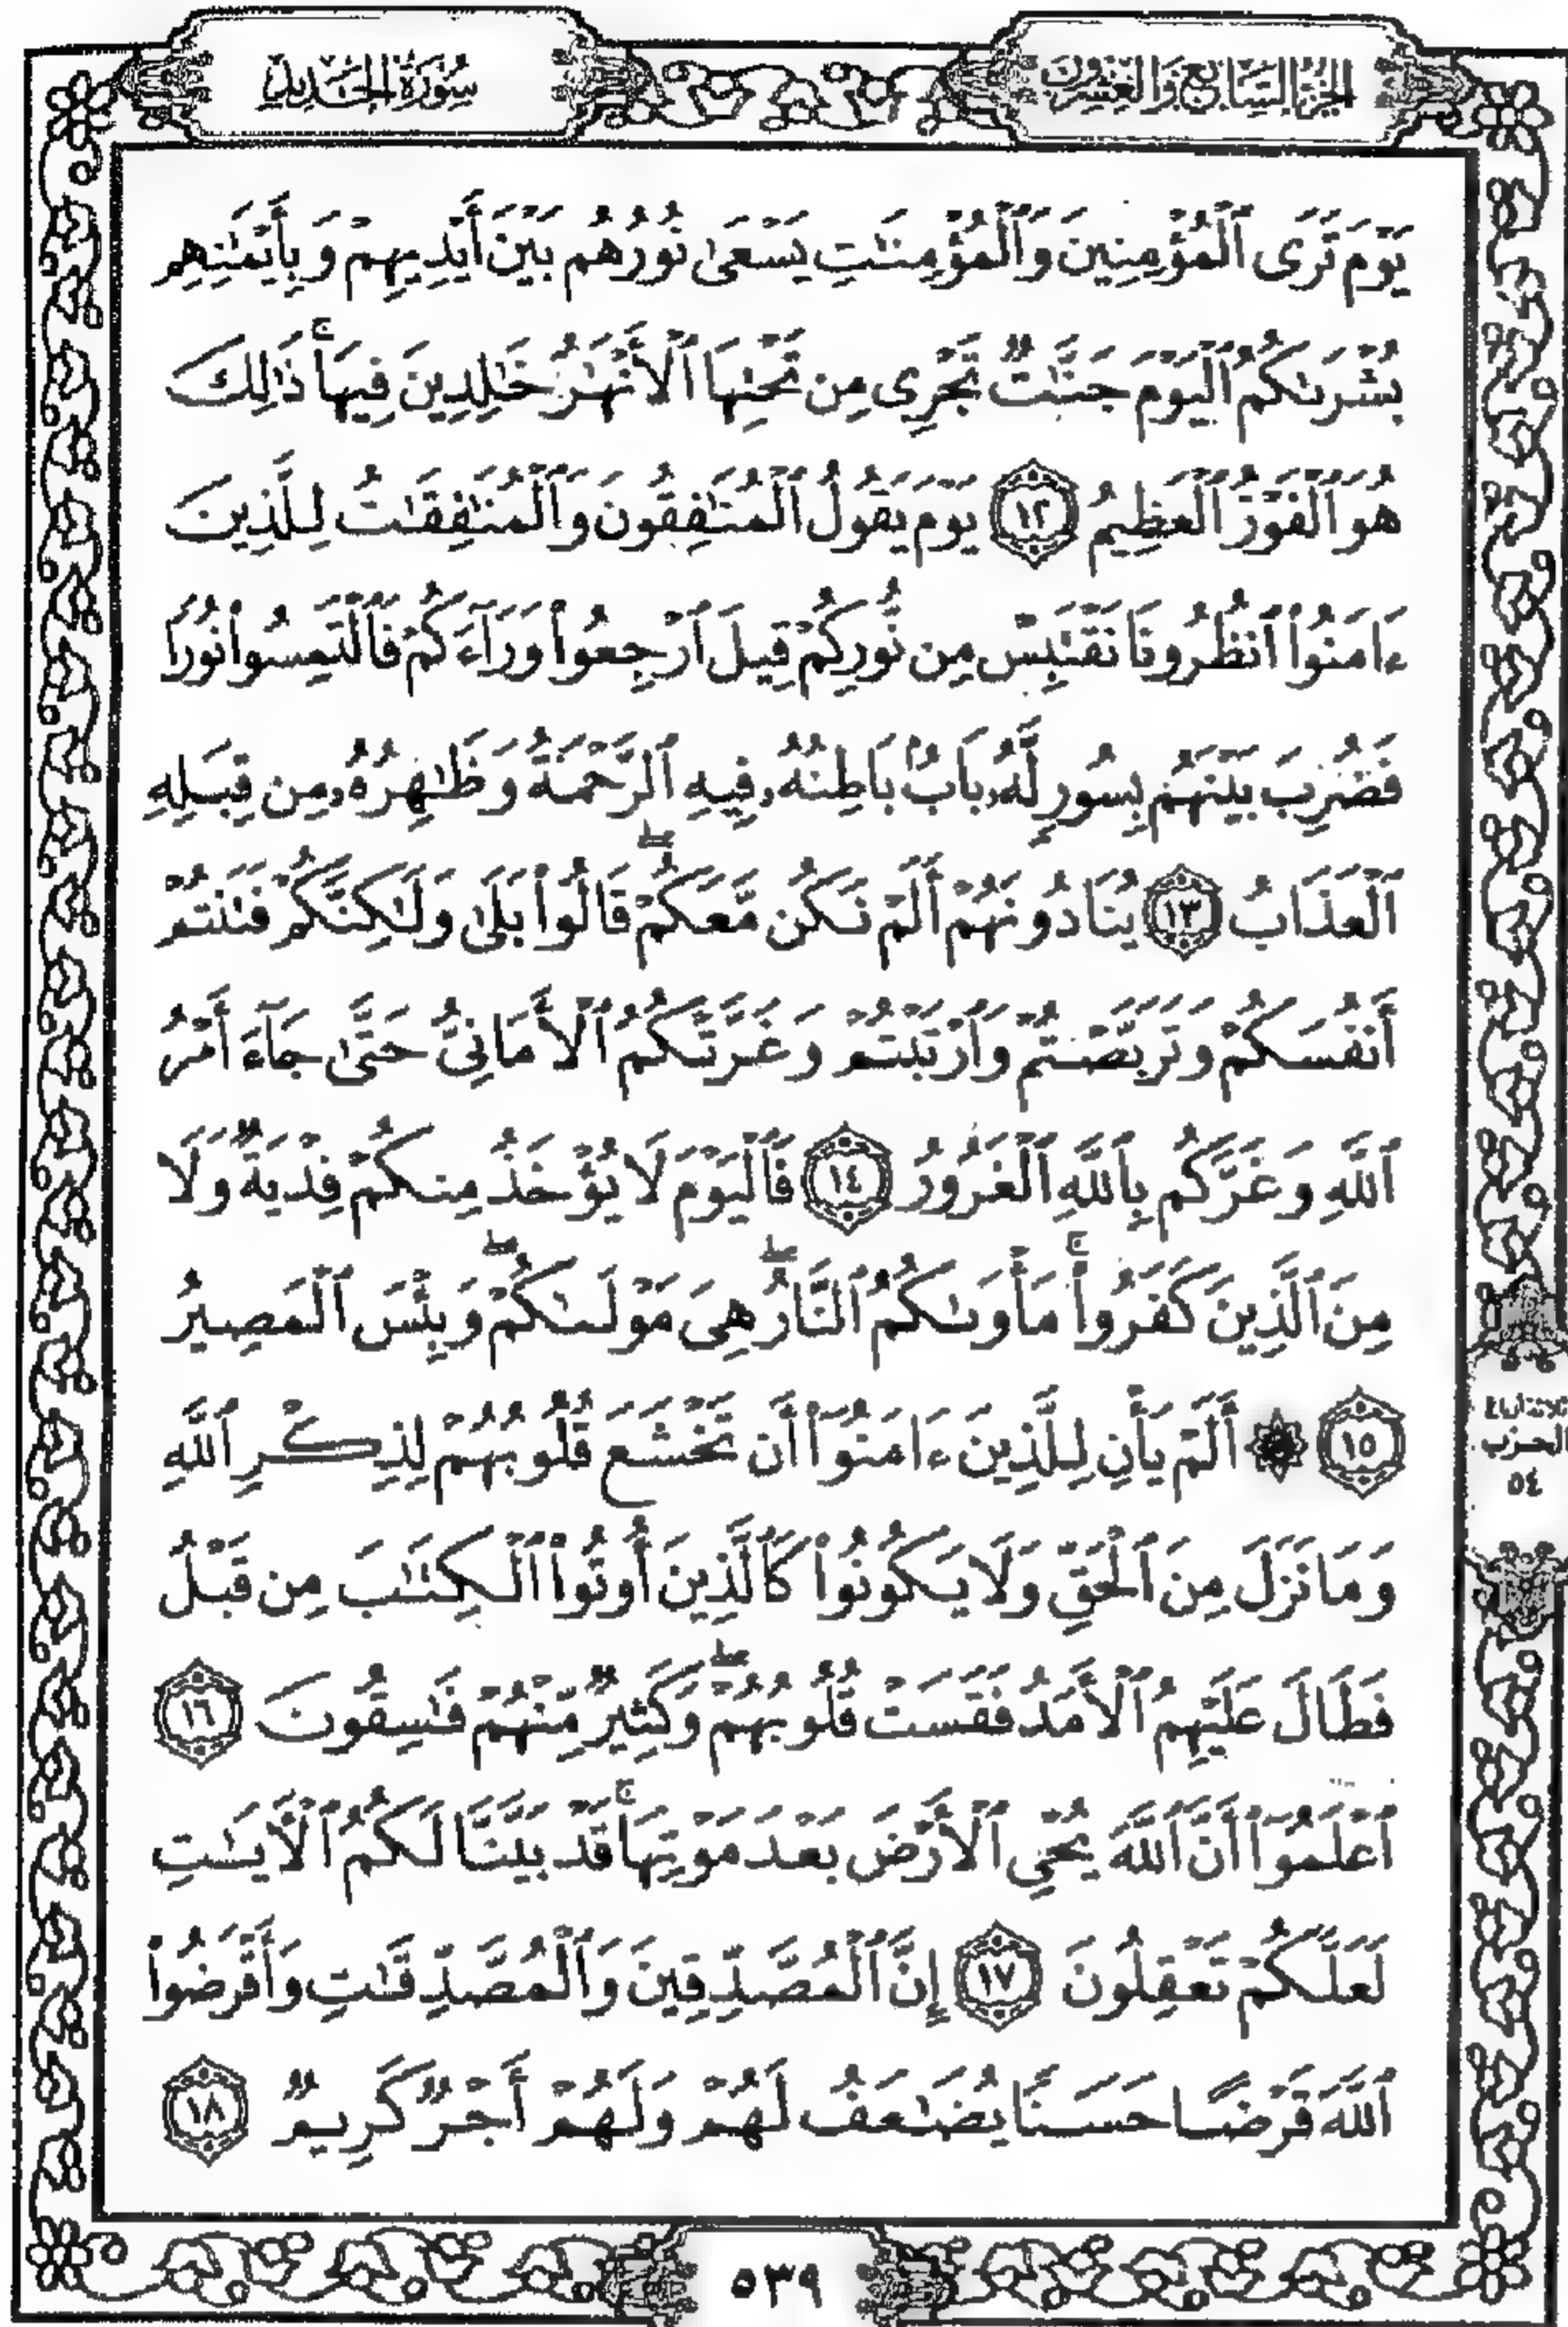 الجزء السابع والعشرون
سورة الحديد
يَوْمَ تَرَى ٱلْمُؤْمِنِينَ وَٱلْمُؤْمِنَٰتِ يَسْعَىٰ نُورُهُم بَيْنَ أَيْدِيهِمْ وَبِأَيْمَٰنِهِم
بُشْرَىٰكُمُ ٱلْيَوْمَ جَنَّٰتٌ تَجْرِى مِن تَحْتِهَا ٱلْأَنْهَٰرُ خَٰلِدِينَ فِيهَا ۚ ذَٰلِكَ
هُوَ ٱلْفَوْزُ ٱلْعَظِيمُ ١٢ يَوْمَ يَقُولُ ٱلْمُنَٰفِقُونَ وَٱلْمُنَٰفِقَٰتُ لِلَّذِينَ
ءَامَنُوا۟ ٱنظُرُونَا نَقْتَبِسْ مِن نُّورِكُمْ قِيلَ ٱرْجِعُوا۟ وَرَآءَكُمْ فَٱلْتَمِسُوا۟ نُورًا
فَضُرِبَ بَيْنَهُم بِسُورٍ لَّهُۥ بَابٌۢ بَاطِنُهُۥ فِيهِ ٱلرَّحْمَةُ وَظَٰهِرُهُۥ مِن قِبَلِهِ
ٱلْعَذَابُ ١٣ يُنَادُونَهُمْ أَلَمْ نَكُن مَّعَكُمْ ۖ قَالُوا۟ بَلَىٰ وَلَٰكِنَّكُمْ فَتَنتُمْ
أَنفُسَكُمْ وَتَرَبَّصْتُمْ وَٱرْتَبْتُمْ وَغَرَّتْكُمُ ٱلْأَمَانِىُّ حَتَّىٰ جَآءَ أَمْرُ
ٱللَّهِ وَغَرَّكُم بِٱللَّهِ ٱلْغَرُورُ ١٤ فَٱلْيَوْمَ لَا يُؤْخَذُ مِنكُمْ فِدْيَةٌ وَلَا
مِنَ ٱلَّذِينَ كَفَرُوا۟ ۚ مَأْوَىٰكُمُ ٱلنَّارُ ۖ هِىَ مَوْلَىٰكُمْ ۖ وَبِئْسَ ٱلْمَصِيرُ
١٥ ۞ أَلَمْ يَأْنِ لِلَّذِينَ ءَامَنُوٓا۟ أَن تَخْشَعَ قُلُوبُهُمْ لِذِكْرِ ٱللَّهِ
وَمَا نَزَلَ مِنَ ٱلْحَقِّ وَلَا يَكُونُوا۟ كَٱلَّذِينَ أُوتُوا۟ ٱلْكِتَٰبَ مِن قَبْلُ
فَطَالَ عَلَيْهِمُ ٱلْأَمَدُ فَقَسَتْ قُلُوبُهُمْ ۖ وَكَثِيرٌ مِّنْهُمْ فَٰسِقُونَ ١٦
ٱعْلَمُوٓا۟ أَنَّ ٱللَّهَ يُحْىِ ٱلْأَرْضَ بَعْدَ مَوْتِهَا ۚ قَدْ بَيَّنَّا لَكُمُ ٱلْـَٔايَٰتِ
لَعَلَّكُمْ تَعْقِلُونَ ١٧ إِنَّ ٱلْمُصَّدِّقِينَ وَٱلْمُصَّدِّقَٰتِ وَأَقْرَضُوا۟
ٱللَّهَ قَرْضًا حَسَنًا يُضَٰعَفُ لَهُمْ وَلَهُمْ أَجْرٌ كَرِيمٌ ١٨
الحزب
٥٤
٥٣٩